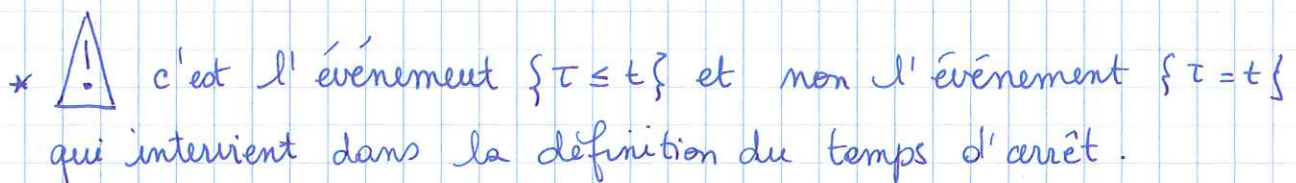 * ⚠ c'est l'événement {τ ≤ t} et non l'événement {τ = t}
qui intervient dans la définition du temps d'arrêt.